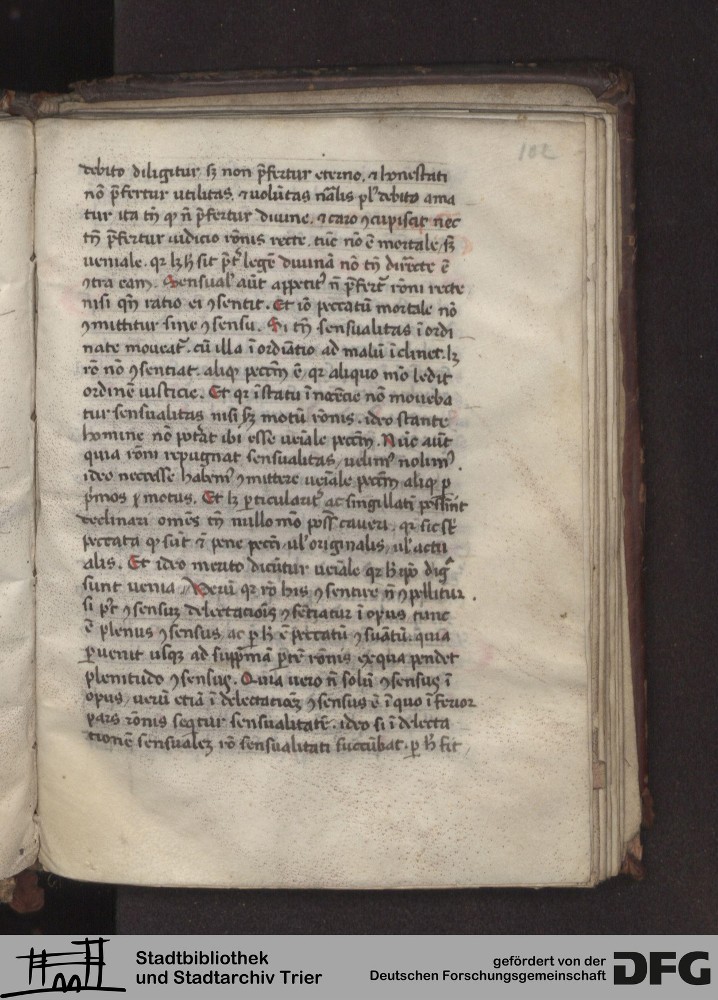 102
debito diligitur sꝫ non p̄fertur eterno. ⁊ honestati
nō p̄fertur utilitas. ⁊ uolūtas nālis plꝰ debito ama
tur ita tn̄ qꝫ n̄ p̄fertur diuine. ⁊ caro ꝯcupiscit nec
tn̄ p̄fertur iudicio rōnis recte. tūc nō ē mortale sꝫ
ueniale. qr lꝫ h̄ sit p̄t legē diuinā nō tn̄ dirēcte ē
ꝯtra eam. Sensualꝰ aūt appetitꝰ n̄ p̄fert᷑ rōni recte
nisi qn̄ ratio ei ꝯsentit. Et iō peccatū mortale nō
ꝯmittitur sine ꝯsensu. Si tn̄ sensualitas īordi
nate moueat᷑. cū illa īordinatio ad malū īclinet. lꝫ
rō nō ꝯsentiat. aliqꝫ pccm̄ ē. qr aliquo mō ledit
ordinē iusticie. Et qr ī statu īnocēcie nō moueba
tur sensualitas nisi sꝫ motū rōnis. ideo stante
homine nō potāt ibi esse ueīale pccm̄. Nūc aūt
quia rōni repugnat sensualitas, uelimꝰ nolimꝰ.
ideo necesse habemꝰ ꝯmittere ueīale pccm̄ aliqꝫ p
p̄mos motus. Et lꝫ ꝑticularitꝰ ac singillatī possint
declinari omēs tn̄ nullo mō poss̄t caueri. qr sic st̄
peccata qꝫ sūt ⁊ pene pcc̄i ul originalis, ul actu
alis. Et ideo merito dicūtur ueīale qr
sunt uenia. Verū qr rō his ꝯsentire n̄ ꝯpellitur.
si pꝰt ꝯsensū delectacīois ꝯseq̄tiatur ī opus tunc
ē plenus ꝯsensus, ac ꝑ h̄ ē peccatū ꝯsum̄atū. quia
ꝑuenit usqꝫ ad supp̄mā ꝑtē rōnis ex qua pendet
plenitudo ꝯsensus. Quia uero n̄ solū ꝯsensus ī
opus, uerū etiā ī delectacīoꝫ ꝯsensus ē ī quo īferior
pars rōnis seqtur sensualitatē. ideo si ī delecta
tionē sensualeꝫ rō sensualitati succūbat. ꝑ h̄ fit
Stadtbibliothek
und Stadtarchiv Trier
gefördert von der
Deutschen Forschungsgemeinschaft
DFG